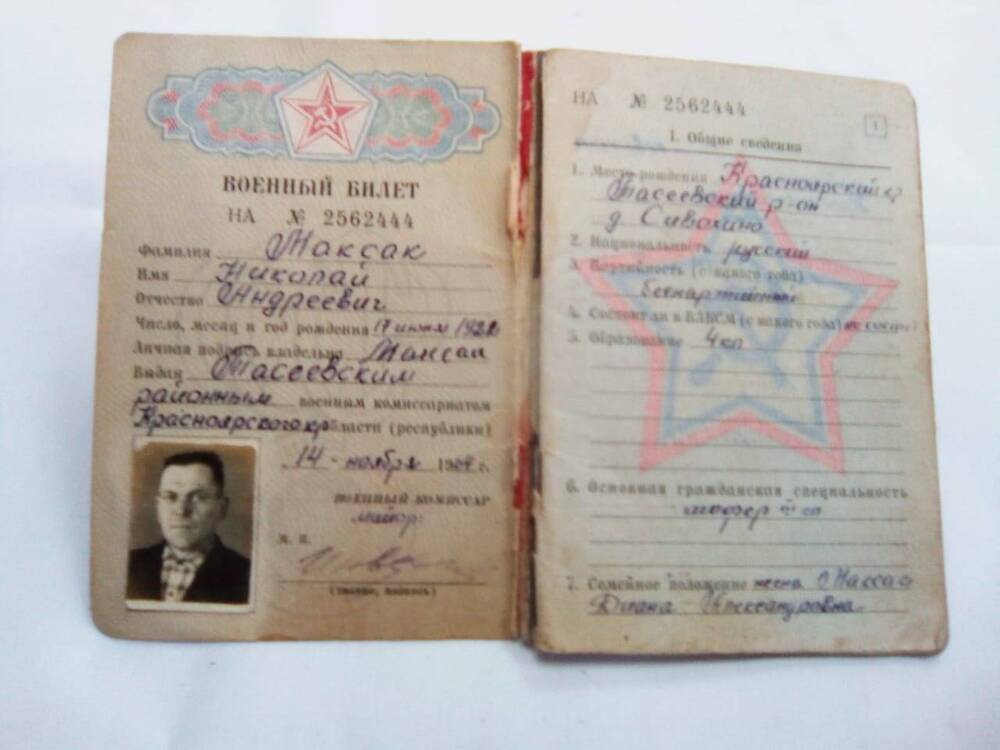 ВОЕННЫЙ БИЛЕТ
НА № 2562444
Фамилия Максак
Имя Николай
Отчество Андреевич
Число, месяц и год рождения 17 июля 1922
Личная подпись владельца Максак
Выдан Тасеевским
районным военным комиссариатом
Красноярского кр области (республики)
14 - ноября 1964 г.
ВОЕННЫЙ КОМИССАР
майор
М. П.
(звание, подпись)
НА № 2562444
1
I. Общие сведения
1. Место рождения Красноярский кр
Тасеевский р-он
д. Сивохино
2. Национальность русский
3. Партийность (с какого года)
беспартийный
4. Состоит ли в ВЛКСМ (с какого года) не состоит
5. Образование 4 кл
6. Основная гражданская специальность
шофер
7. Семейное положение жена Максак
Диана Александровна